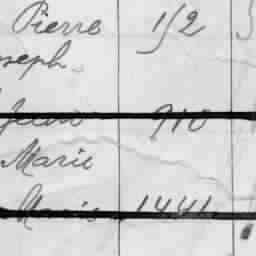 Pierre 152
oseph
Jean 910
Marie
Marie 1441